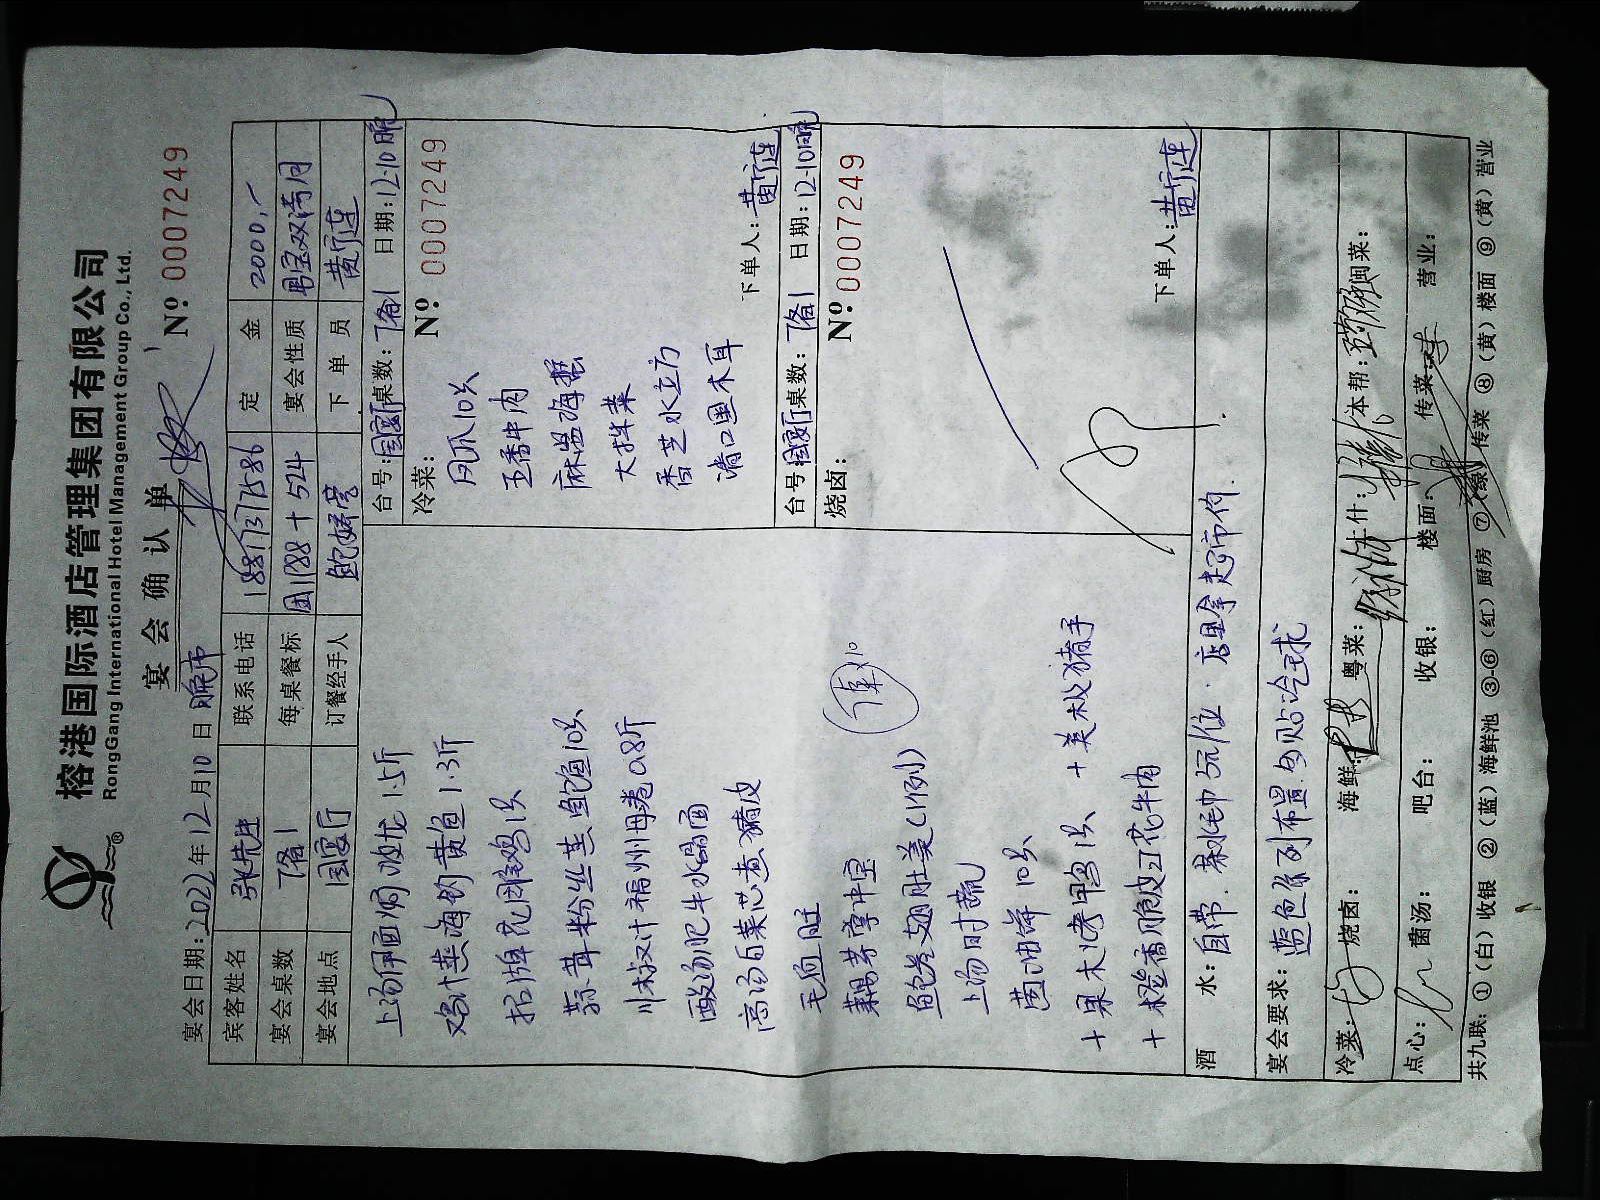 榕港国际酒店管理集团有限公司
RongGang International Hotel Management Group Co., Ltd.
宴会确认单
宴会日期：2022年12月10日 晚市 Nº 0007249
宾客姓名 张先生 联系电话 18817371586 定金 2000,-
宴会桌数 7备1 每桌餐标 团1188+524 宴会性质 男宝双满月
宴会地点 国宴厅 订餐经手人 下单员 黄宁连
上汤伊面焗波龙1.5斤
鸡汁蒸海钓黄鱼1.3斤
招牌花雕鸡1只
蒜茸粉丝蒸鲍鱼10只
川椒汁福州海卷0.8斤
酸汤肥牛水晶面
高汤白菜芯煮猪皮
毛血旺
藕芽掌中宝
鲍参翅肚羹(1例)
上汤时蔬
菌油饼10只
+果木烤鸭1只 +美极猪手
+橙香脆皮雪花牛肉
台号：国宴厅 桌数：7备1 日期：12-10晚
冷菜： Nº 0007249
凤爪10只
五香牛肉
麻酱海蜇
大拌菜
香芝水立方
清口黑木耳
下单人：黄宁连
台号：国宴厅 桌数：7备1 日期：12-10晚
烧卤： Nº 0007249
下单人：黄宁连
酒水：自带. 茶水毛巾5元/位. 店里拿超市价.
宴会要求：蓝色系列布置.
冷菜： 烧卤： 海鲜： 粤菜： 什： 本帮： 闽菜：
点心： 菌汤： 吧台： 收银： 楼面： 传菜： 营业：
共九联：①(白)收银 ②(蓝)海鲜池 ③-⑥(红)厨房 ⑦(绿)传菜 ⑧(黄)楼面 ⑨(黄)营业